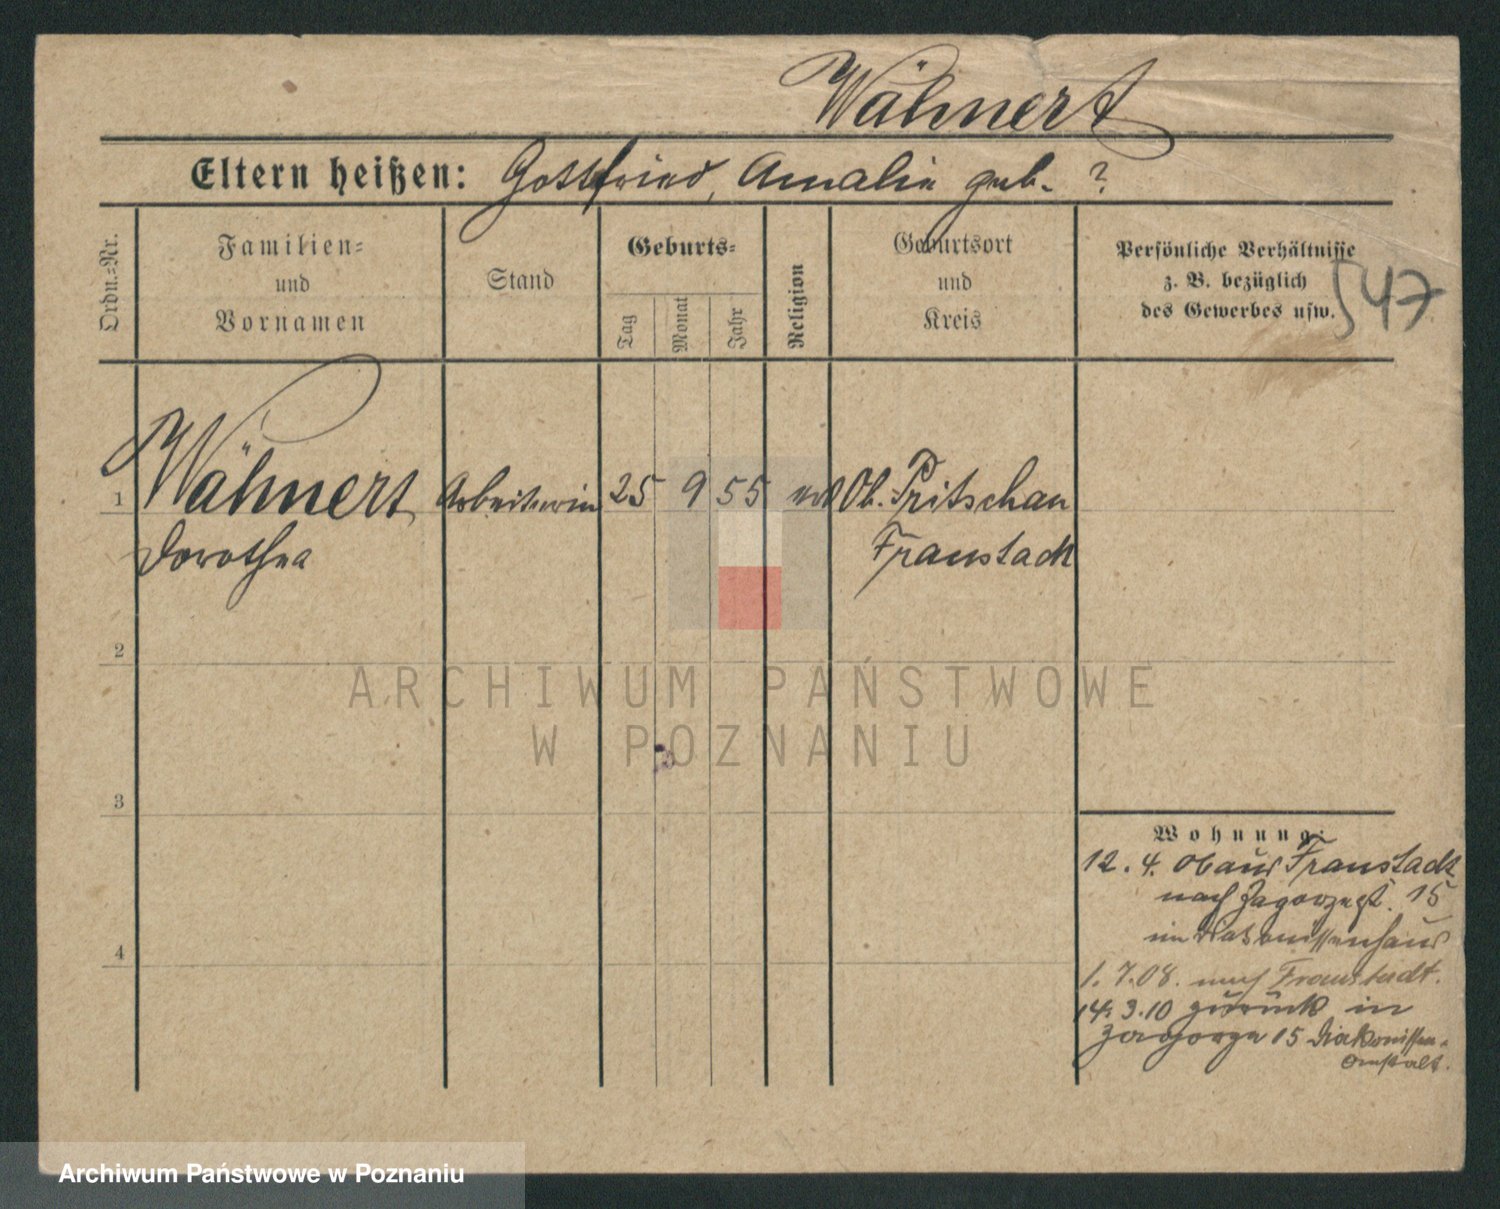 Wähnert
Eltern heißen: Gottfried, Amalie geb. ?
Ordn.=Nr.
Familien=
und
Vornamen
Stand
Geburts=
Tag
Monat
Jahr
Religion
Geburtsort
und
Kreis
Persönliche Verhältnisse
z. B. bezüglich
des Gewerbes usw.
547
1 Wähnert Arbeiterin 25 9 55 Ob. Pritschen
Dorothea Fraustadt
2
3
4
ARCHIWUM PAŃSTWOWE
W POZNANIU
Wohnung:
12. 4. 06 aus Fraustadt
nach Zagorze 15
im Diakonissenhaus
1. 7. 08. nach Fraustadt.
14. 3. 10 zurück in
Zagorze 15 Diakonissen-
anstalt.
Archiwum Państwowe w Poznaniu